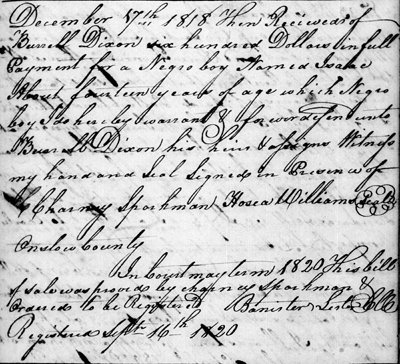 December 17th 1818 Then Recieved of
Burrell Dixon six hundred Dollars in full
Payment for a Negro boy Named Isaac
About fourteen years of age which Negro
boy I do hereby warrant & forever defend unto
Burrell Dixon his heirs & assigns Witness
my hand and seal Signed in Presence of
Charney Sparkman Hosea Williams Seal
Onslow County
In Court may term 1820 This bill
of sale was proved by Sparkman &
Ordered to be Registered Banister Lester CCC
Registered Sept 16th 1820